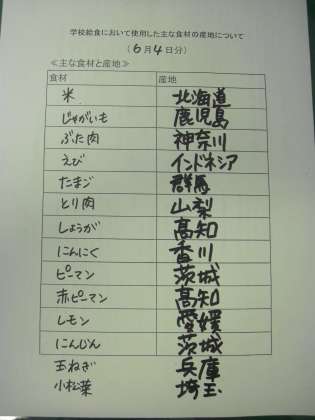 学校給食において使用した主な食材の産地について
(6月4日分)
≪主な食材と産地≫
食材 産地
米 北海道
じゃがいも 鹿児島
ぶた肉 神奈川
えび インドネシア
たまご 群馬
とり肉 山梨
しょうが 高知
にんにく 香川
ピーマン 茨城
赤ピーマン 高知
レモン 愛媛
にんじん 茨城
玉ねぎ 兵庫
小松菜 埼玉